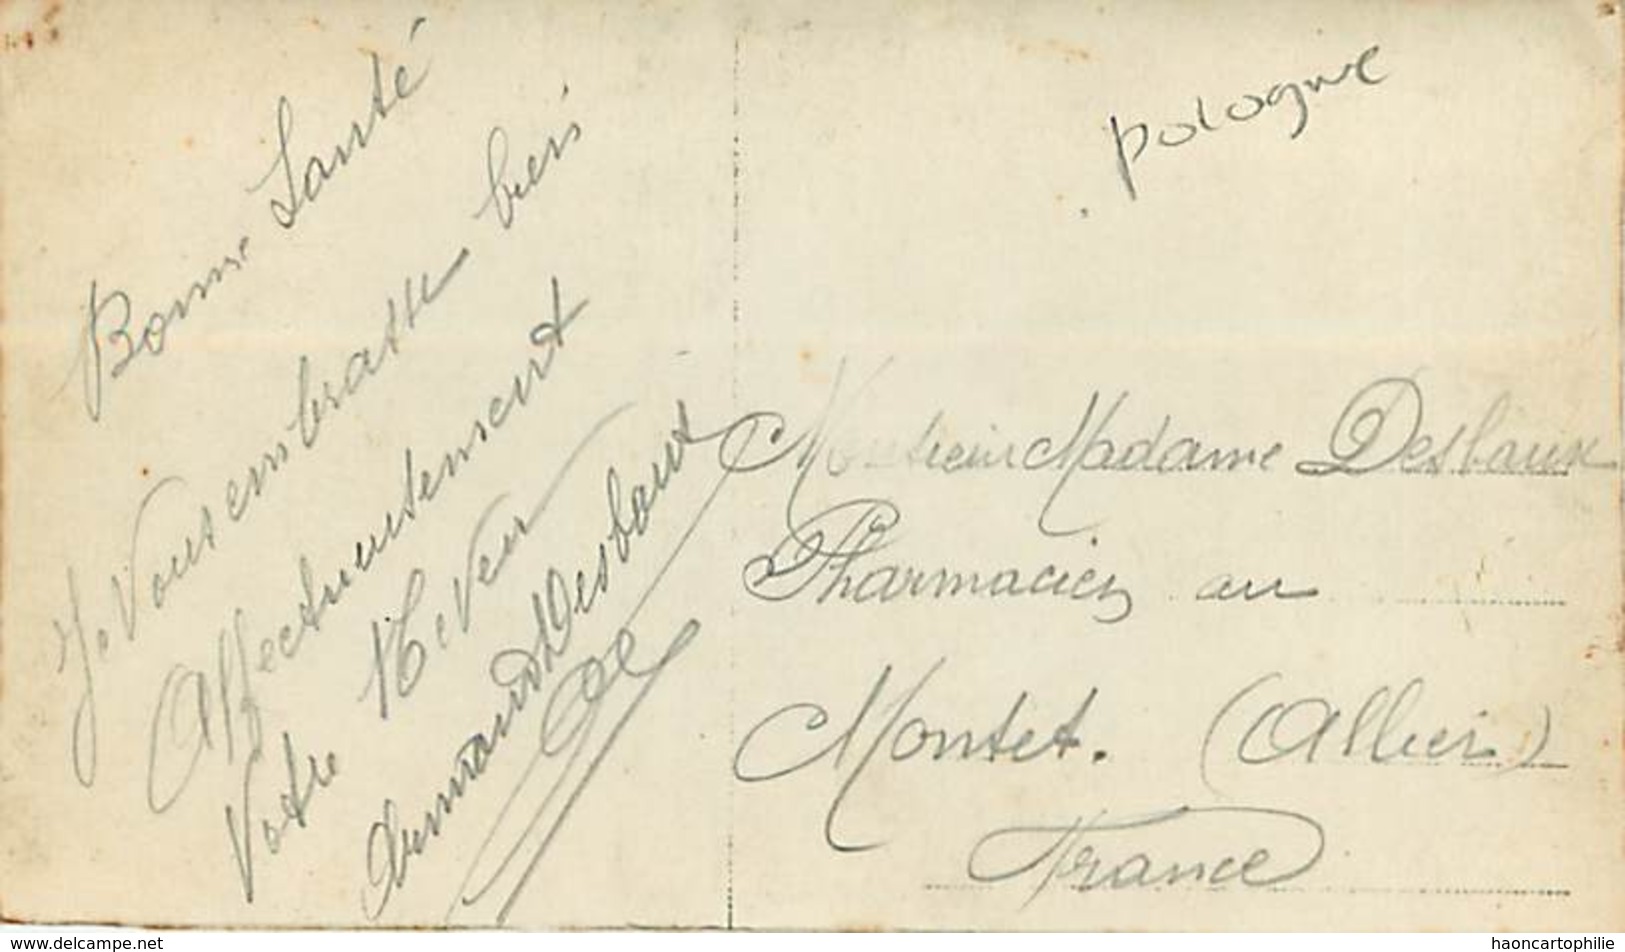 Bonne Santé
Je Vous embrasse bien
Affectueusement
Votre Neveu
Armand Desbaux
Pologne
Monsieur Madame Desbaux
Pharmacien au
Montet. (Allier)
France
www.delcampe.net
haoncartophilie